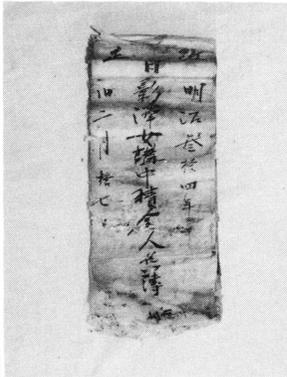 明治参拾四年
日影澤女講中積金人名簿
旧二月拾七日